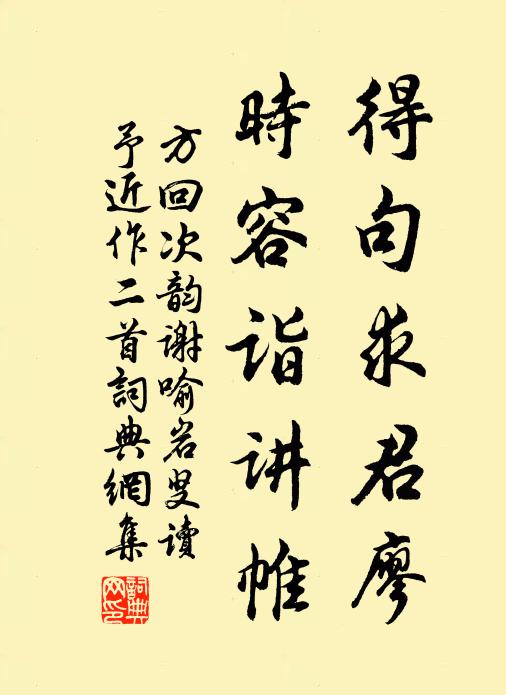 得句求君廖
時容诣讲帷
方回次韵谢喻岩叟讀
予近作二首詞典網集
詞典
网印